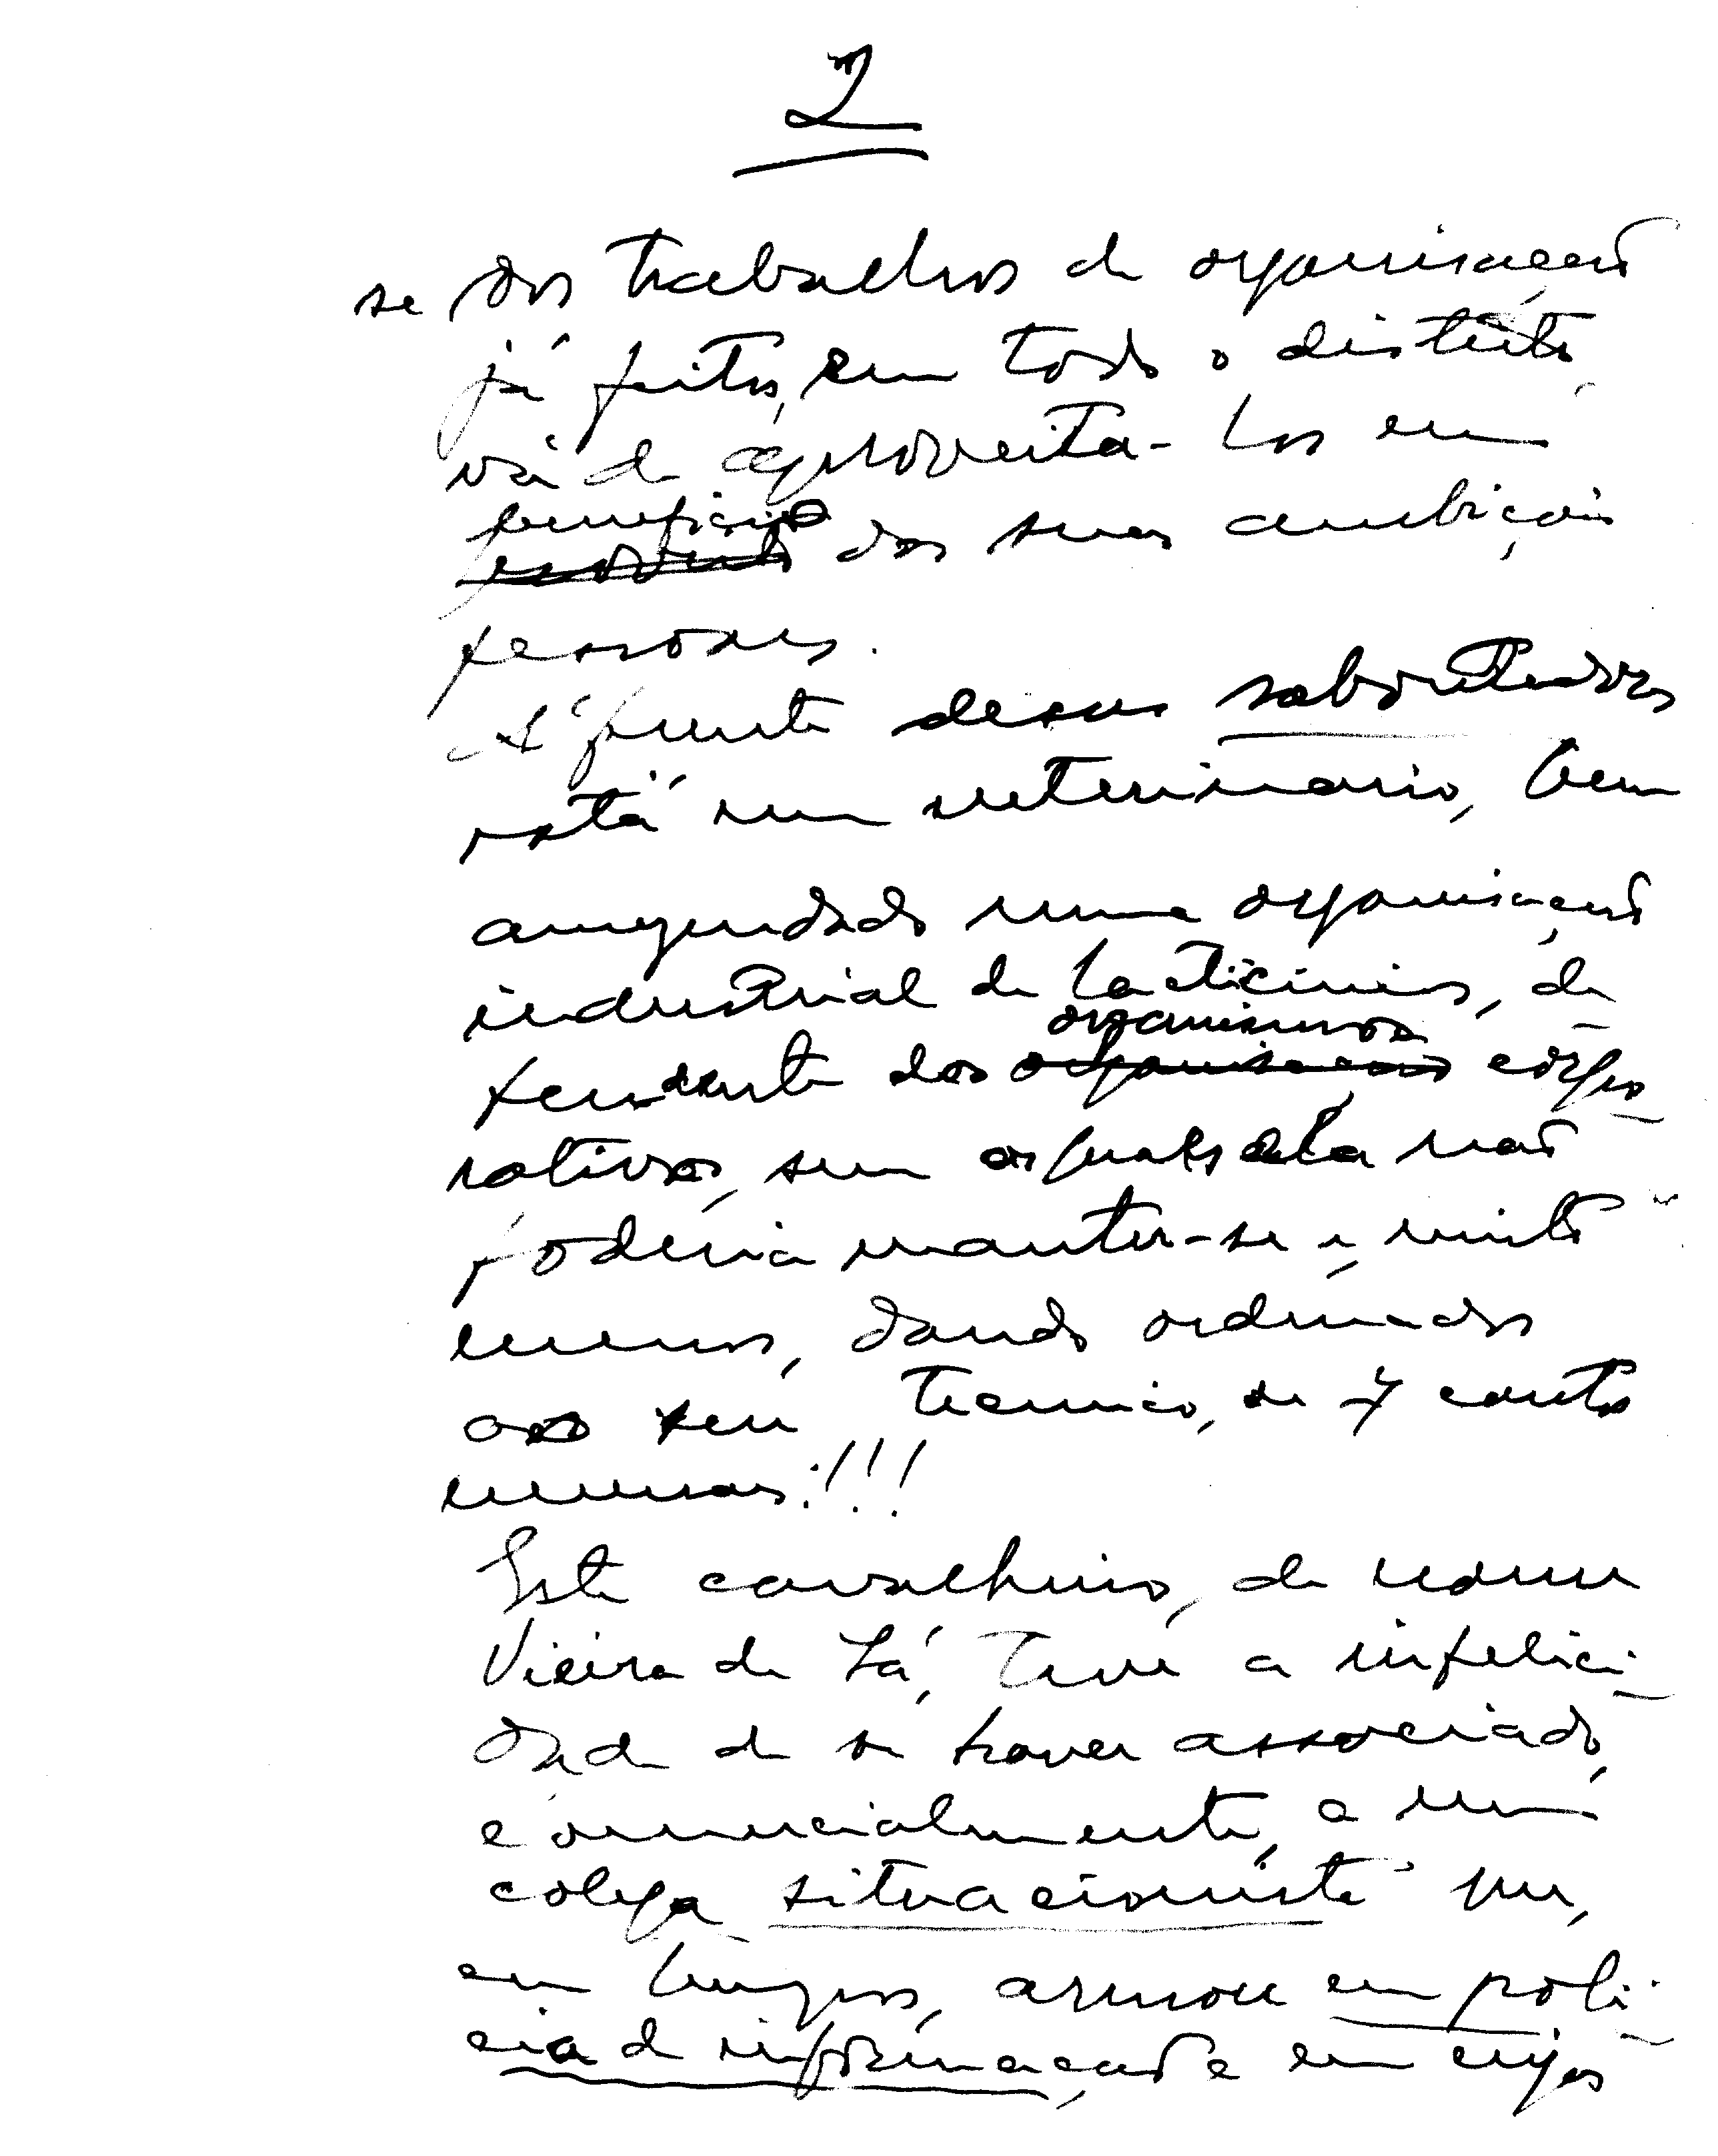 2
se dos trabalhos de organisação
já feitos, em todo o distrito,
vá de aproveita-los em
beneficio
proveito das suas ambições
pessoaes.
Á frente desses saboteadores
está um veterinario, bem
amezendado numa organisação
industrial de lacticinios, de
organismos
pendente dos organisações corpo
rativos, sem os quaes ela não
poderia manter-se e, muito
menos, dando ordenados
ao seu tecnico, de 7 contos
mensaes!!!
Este cavalheiro, de nome
Vieira de Sá, teve a infelici-
dade de se haver associado,
comercialmente, a um
colega situacionista que,
em tempos, armou em poli-
cia de informação e em cujos